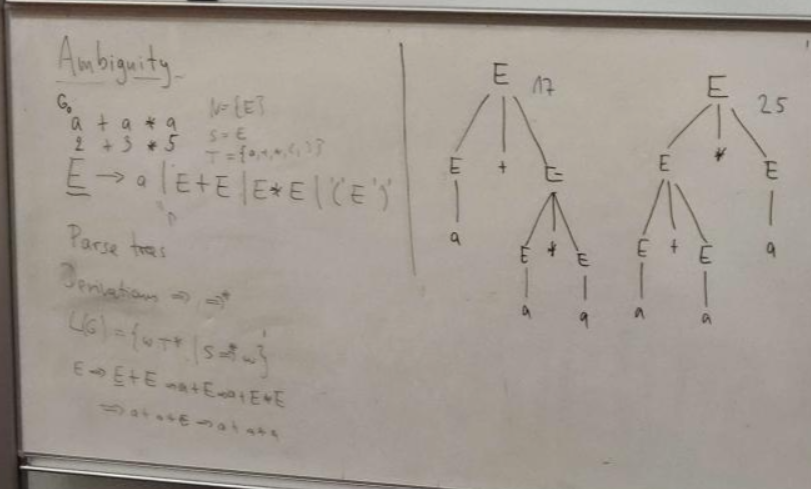 Ambiguity
G₀
a + a * a
2 + 3 * 5
N = {E}
S = E
T = {a,+,*,(,)}
E → a | E+E | E*E | '(' E ')'
Parse trees
Derivations ⇒, ⇒*
L(G) = {w T* | S ⇒* w}
E ⇒ E+E ⇒ a+E ⇒ a+E*E
⇒ a+a*E ⇒ a+a*a
E 17
E + E
a E * E
a a
E 25
E * E
E + E a
a a